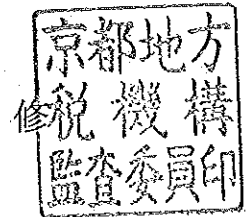 京都地方
修
税機構
監査委員印